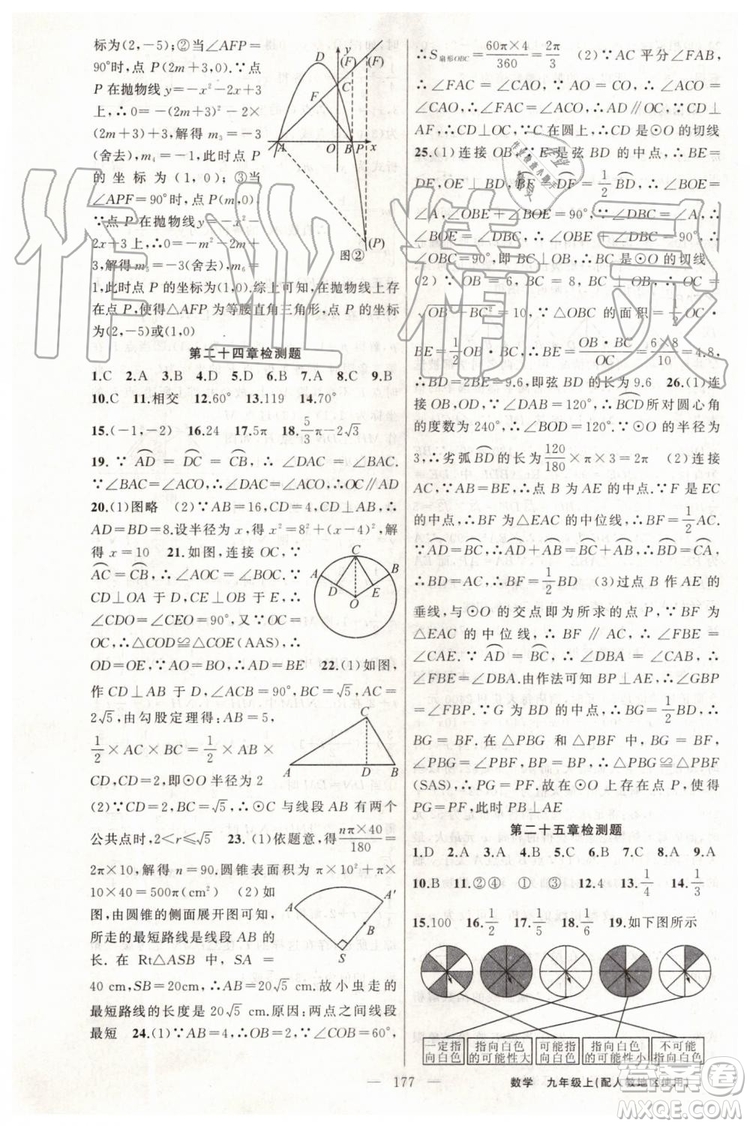 标为(2,-5);②当∠AFP=
90°时,点 P(2m+3,0).∵点
P 在抛物线 y=-x²-2x+3
上,∴0=-(2m+3)²-2×
(2m+3)+3,解得 m₃=-3
(舍去),m₄=-1,此时点 P
的坐标为(1,0);③当
∠APF=90°时,P(m,0).
∵点 P 在抛物线 y=-x²-
2x+3 上,∴0=-m²-2m+
3,解得 m₅=-3(舍去),m₆=
1,此时点 P 的坐标为(1,0).综上可知,在抛物线上存在点
P,使得△AFP 为等腰直角三角形,点 P 的坐标
为(2,-5)或(1,0)
图②
第二十四章检测题
1.C 2.A 3.B 4.D 5.D 6.B 7.A 8.C 9.B
10.C 11.相交 12.60° 13.119 14.70°
15.(-1,-2) 16.24 17.5π 18.5/3π-2√3
19.∵AD=DC=CB,∴∠BAC=∠DAC.∵
∠BAC=∠ACO,∴∠DAC=∠ACO,∴OC∥AD
20.(1)图略 (2)∵AB=16,CD=4,CD⊥AB,∴
AD=BD=8.设半径为 x,根据 x²=8²+(x-4)²,解
得 x=10 21.如图,连接 OC,∵
AC=CB,∴∠AOC=∠BOC.∵
CD⊥OA 于 D,CE⊥OB 于 E,∴
∠CDO=∠CEO=90°,∵CO=
CO,∴△COD≌△COE(AAS),∴
OD=OE,∴AD=BE 22.(1)如图,
作 CD⊥AB 于点 D.
∵∠ACB=90°,BC=√5,AC=
2√5,由勾股定理得:AB=5,
1/2×AC×BC=1/2×AB×
CD,∴CD=2,即⊙O 半径为 2
(2)∵BC=√5,∴⊙C 与线段 AB 有两个
公共点时,2<r≤√5 23.(1)依题意,得 nπ×40/180=
2π×10,解得 n=90.圆锥表面积为 π×10²+
π×10×40=500π(cm²) (2)如
图,由圆锥的侧面展开图可见,小虫
所走的最短路线是线段 AB 的
长.在 Rt△ASB 中,SA=
40 cm,SB=20 cm,∴AB=20√5 cm.故小虫走的
最短路线的长度是 20√5 cm.原因:两点之间线段
最短 24.(1)∵AB=4,∴OB=2.∵∠COB=60°,
∴S扇形OBC=60π×4/360=2π/3 (2)∵AC 平分∠FAB,
∴∠FAC=∠CAO,∵AO=CO,∴∠ACO=
∠CAO,∴∠FAC=∠ACO,∴AF∥OC,∵CD⊥
AF,∴CD⊥OC,∵C 在圆上,∴CD 是⊙O 的切线
25.(1)连接 OB,∵E 是弦 BD 的中点,∴BE=
DE,OE⊥BD,BF=DF=1/2BD,∴∠BOE=
∠A,∠OBE+∠BOE=90°.∵∠DBC=∠A,
∴∠BOE=∠DBC,∴∠OBE+∠DBC=90°,∴
∠OBC=90°,即 BC⊥OB,∴BC 是⊙O 的切线
(2)∵OB=6,BC=8,BC⊥OB,∴OC=
√OB²+BC²=10.∵△OBC 的面积=1/2OC·
BE=1/2OB·BC,∴BE=OB·BC/OC=6×8/10=4.8,
∴BD=2BE=9.6,即弦 BD 的长为 9.6 26.(1)连
接 OB,OD,∵∠DAB=120°,∴BCD所对圆心角
的度数为 240°,∴∠BOD=120°.∵⊙O 的半径为
3,∴劣弧BD的长为120/180×π×3=2π (2)连接
AC.∵AB=BE,∴点 B 为 AE 的中点.∵F 是 EC
的中点,∴BF 为△EAC 的中位线,∴BF=1/2AC.
∵AD=BC,∴AD+AB=BC+AB,∴BD=CA,
∴BD=AC,∴BF=1/2BD (3)过点 B 作 AE 的
垂线,与⊙O 的交点即为所求的点 P,∵BF 为
△EAC 的中位线,∴BF∥AC,∴∠FBE=
∠CAE.∵AD=BC,∴∠CAB=∠DBA,∴∠FBE
=∠DBA.由作法可知 BP⊥AE,∴∠GBP
=∠FBP.∵G 为 BD 的中点,∴BG=1/2BD,∴
BG=BF.在△PBG 和△PBF 中,
BG=BF,∠PBG=∠PBF,BP=BP,∴△PBG≌△PBF
(SAS),∴PG=PF.故在⊙O 上存在点 P,使得
PG=PF,此时 PB⊥AE
第二十五章检测题
1.D 2.A 3.A 4.C 5.B 6.B 7.C 8.A 9.A
10.B 11.②④ ① ③ 12.1/2 13.4 14.1/3
15.100 16.1/2 17.1/5 18.1/6 19.如下图所示
一定指向白色
指向白色的可能性大
可能指向白色
指向白色的可能性小
不可能指向白色
177
数学 九年级上(配人教地区使用)
作业精灵